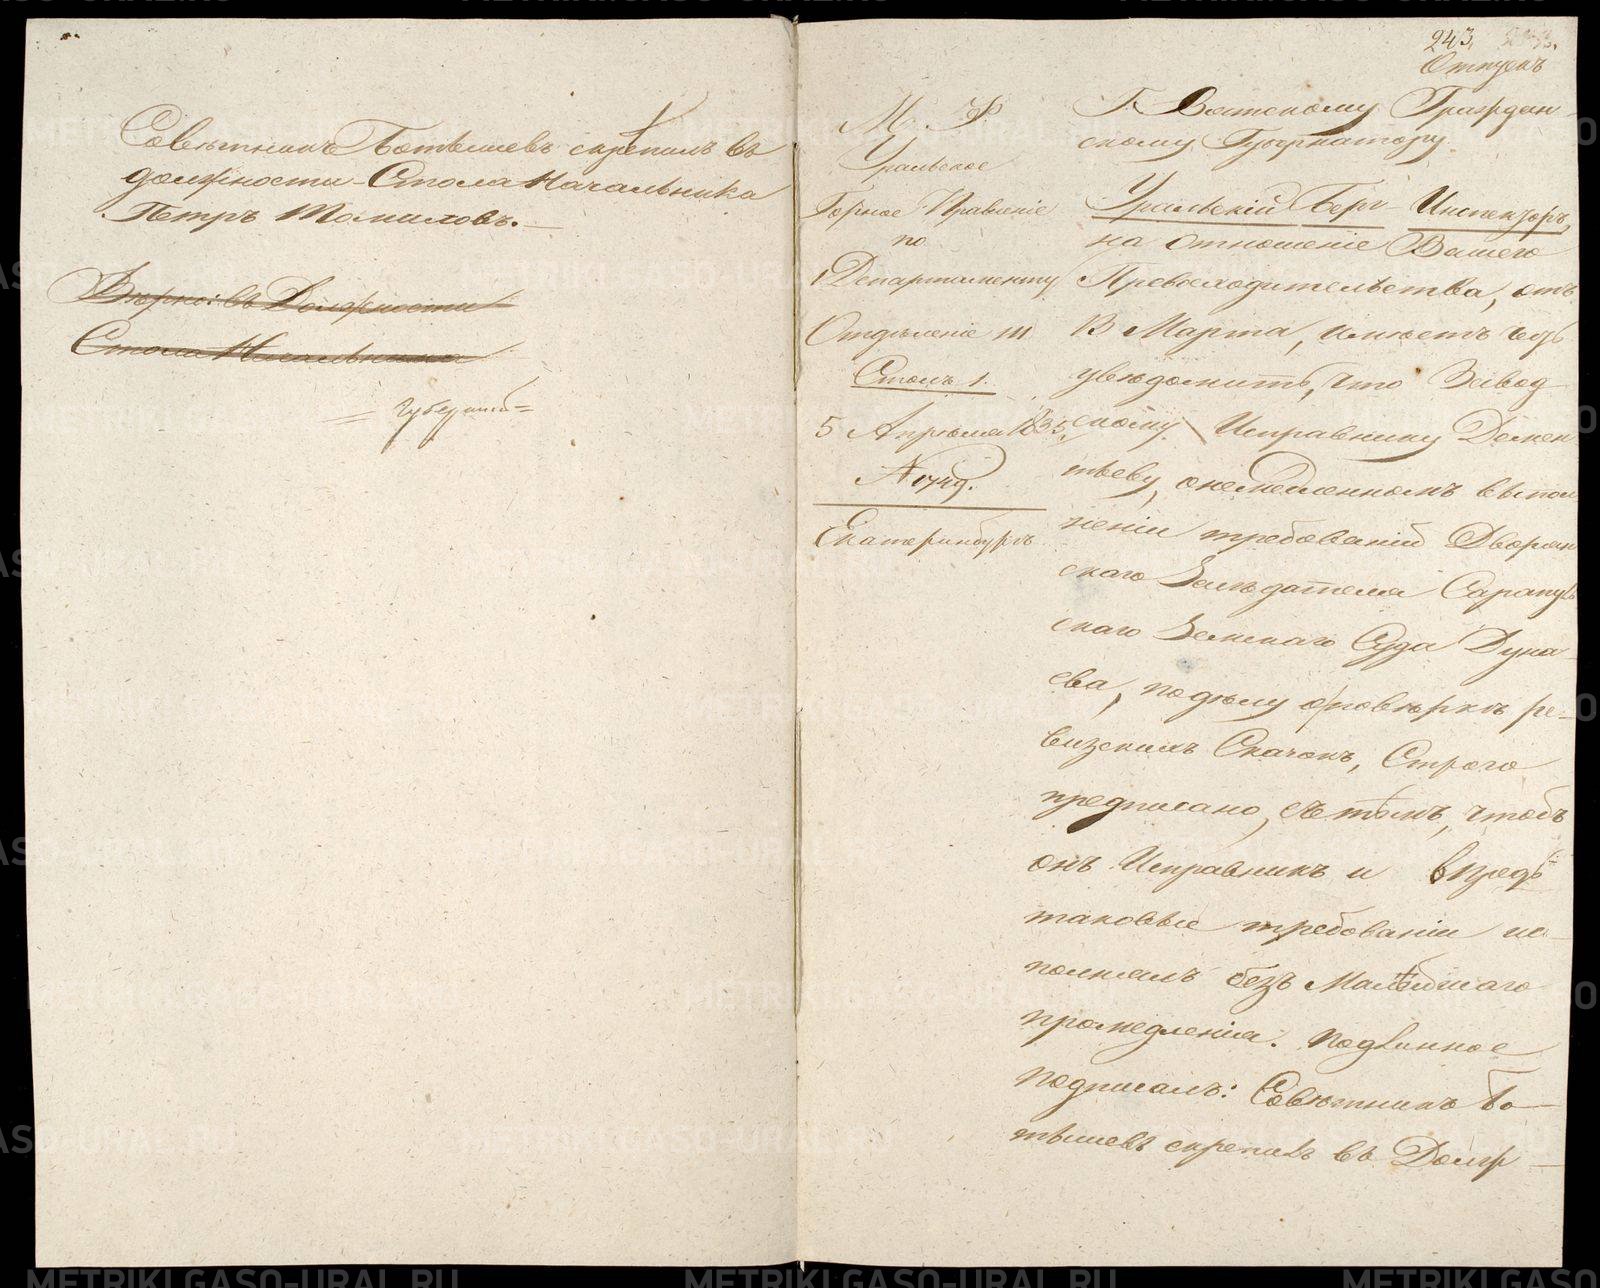 Советникъ Ботышевъ скрепилъ въ
должности Стола Начальника
Петръ Томиловъ.
въ Должности
Стола Начальника
243.
Отпускъ
М. Ф.
Уральское
Горное Правленіе
по
1 Департаменту
Отделеніе III
Столъ 1.
5 Апреля 1835.
N 1749.
Екатеринбургъ
Г. Вятскому Граждан
скому Губернатору.
Уральскій Берг Инспекторъ,
на отношеніе Вашего
Превосходительства, отъ
13 Марта, имѣетъ честь
уведомить, что Завод
скому Исправнику Демен
тьеву, о немедленномъ выпол
неніи требованій Дворян
скаго Заседателя Сарапуль
скаго Земскаго Суда Дуна-
ева, по делу о поверке ре-
визскихъ Сказокъ, Строго
предписано, съ темъ, чтобъ
онъ Исправникъ и впредь
таковые требованіи ис-
полнялъ безъ Малейшаго
промедленія. Подлинное
подписалъ: Советникъ Бо-
тышевъ скрепилъ въ Долж-